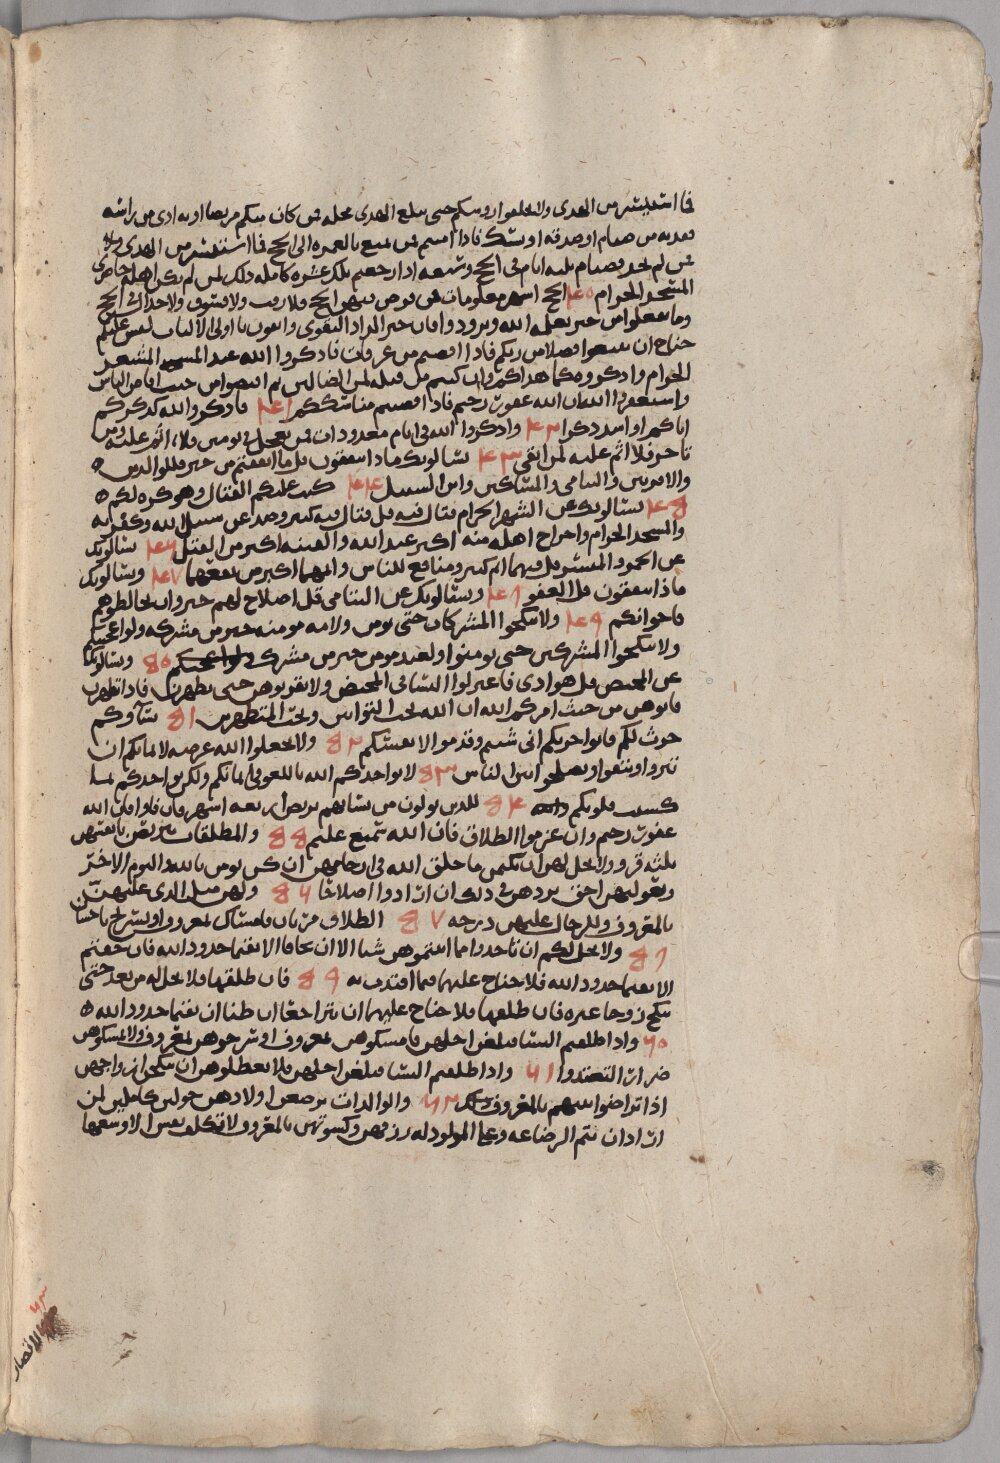 فما استيسر من الهدى ولا تحلقوا روسكم حتى يبلغ الهدى محله فمن كان منكم مريضا او به اذى من راسه
ففديه من صيام او صدقه او نسك فاذا امنتم فمن تمتع بالعمره الى الحج فما استيسر من الهدى
فمن لم يجد فصيام ثلثه ايام فى الحج وسبعه اذا رجعتم تلك عشره كامله ذلك لمن لم يكن اهله حاضرى
المسجد الحرام ٤٠ الحج اشهر معلومات فمن فرض فيهن الحج فلا رفث ولا فسوق ولا جدال فى الحج
وما تفعلوا من خير يعلمه الله وتزودوا فان خير الزاد التقوى واتقون يا اولى الالباب ليس عليكم
جناح ان تبتغوا فضلا من ربكم فاذا افضتم من عرفات فاذكروا الله عند المشعر
الحرام واذكروه كما هداكم وان كنتم من قبله لمن الضالين ثم افيضوا من حيث افاض الناس
واستغفروا الله ان الله غفور رحيم فاذا قضيتم مناسككم ٤١ فاذكروا الله كذكركم
اباكم او اشد ذكرا ٤٢ واذكروا الله فى ايام معدودات فمن تعجل فى يومين فلا اثم عليه ومن
تاخر فلا اثم عليه لمن اتقى ٤٣ يسالونك ماذا ينفقون قل ما انفقتم من خير فللوالدين
والاقربين واليتامى والمساكين وابن السبيل ٤٤ كتب عليكم القتال وهو كره لكم
٤٥ يسالونك عن الشهر الحرام قتال فيه قل قتال فيه كبير وصد عن سبيل الله وكفر به
والمسجد الحرام واخراج اهله منه اكبر عند الله والفتنه اكبر من القتل ٤٦ يسالونك
عن الخمر والميسر قل فيهما اثم كبير ومنافع للناس واثمهما اكبر من نفعهما ٤٧ ويسالونك
ماذا ينفقون قل العفو ٤٨ ويسالونك عن اليتامى قل اصلاح لهم خير وان تخالطوهم
فاخوانكم ٤٩ ولا تنكحوا المشركات حتى يومن ولامه مومنه خير من مشركه ولو اعجبتكم
ولا تنكحوا المشركين حتى يومنوا ولعبد مومن خير من مشرك ولو اعجبكم ٥٠ ويسالونك
عن المحيض قل هو اذى فاعتزلوا النسا فى المحيض ولا تقربوهن حتى يطهرن فاذا تطهرن
فاتوهن من حيث امركم الله ان الله يحب التوابين ويحب المتطهرين ٥١ نساوكم
حرث لكم فاتوا حرثكم انى شيتم وقدموا لانفسكم ٥٢ ولا تجعلوا الله عرضه لايمانكم ان
تبروا وتتقوا وتصلحوا بين الناس ٥٣ لا يواخذكم الله باللغو فى ايمانكم ولكن يواخذكم بما
كسبت قلوبكم ٥٤ للذين يولون من نسايهم تربص اربعه اشهر فان فاوا فان الله
غفور رحيم وان عزموا الطلاق فان الله سميع عليم ٥٥ والمطلقات يتربصن بانفسهن
ثلثه قرو ولا يحل لهن ان يكتمن ما خلق الله فى ارحامهن ان كن يومن بالله واليوم الاخر
وبعولتهن احق بردهن فى ذلك ان ارادوا اصلاحا ٥٦ ولهن مثل الذى عليهن
بالمعروف وللرجال عليهن درجه ٥٧ الطلاق مرتان فامساك بمعروف او تسريح باحسان
٥٨ ولا يحل لكم ان تاخذوا مما اتيتموهن شيا الا ان يخافا الا يقيما حدود الله فان خفتم
الا يقيما حدود الله فلا جناح عليهما فيما افتدت به ٥٩ فان طلقها فلا تحل له من بعد حتى
تنكح زوجا غيره فان طلقها فلا جناح عليهما ان يتراجعا ان ظنا ان يقيما حدود الله
٦٠ واذا طلقتم النسا فبلغن اجلهن فامسكوهن بمعروف او سرحوهن بمعروف ولا تمسكوهن
ضرارا لتعتدوا ٦١ واذا طلقتم النسا فبلغن اجلهن فلا تعضلوهن ان ينكحن ازواجهن
اذا تراضوا بينهم بالمعروف ٦٢ والوالدات يرضعن اولادهن حولين كاملين لمن
اراد ان يتم الرضاعه وعلى المولود له رزقهن وكسوتهن بالمعروف لا تكلف نفس الا وسعها
٦٣
لا تضار